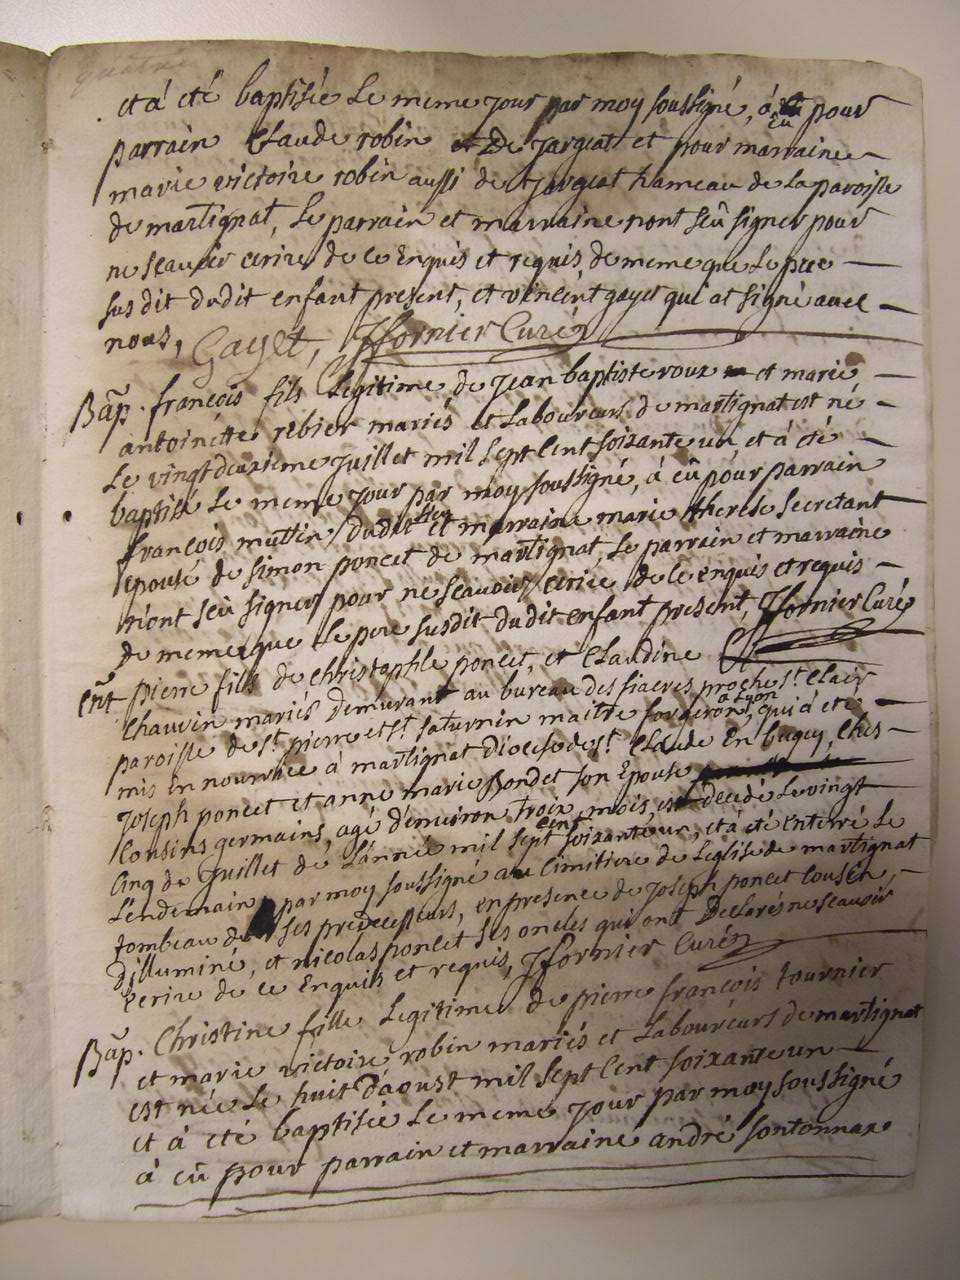 quatre
et á eté baptisée Le meme jour par moy soussigné, á eu pour
parrain Claude robin De Jargeat et pour marraine
marie victoire robin aussi de Jargeat hameau de La paroisse
de martignat, Le parrain et marraine nont seû signer pour
ne scauoir ecrire de ce Enquis et requis, de meme que Le pere
sus dit dudit enfant present, et vincent gayet qui at signé auec
nous, Gayet, JFornier Curé
Bap. françois fils Legitime de Jean baptiste roux et marie
antoinette rebier mariés et Laboureurs de martignat est né
Le vingt deuxieme Juillet mil sept Cent soixante un et á eté
baptisé Le meme jour par moy soussigné, á eû pour parrain
françois muttin dudit lieu et marraine marie therese secretant
epouse de simon poncet de martignat, Le parrain et marraine
n'ont seû signer pour ne scauoir ecrire de ce enquis et requis
de meme que Le pere susdit dudit enfant present, JFornier Curé
Ent pierre fils de Christophle poncet, et Claudine
Chauvin mariés Demurant au bureau des fiacres proche st. Clair
paroisse de st. pierre et st. saturnin maitre forgeron á Lyon, qui á eté
mis En nourrice á martignat Diocese de st. Claude En bugey, Ches
Joseph poncet et anne marie Bondet son Epouse
Cousins germains, agé d'enuiron troix mois, est decédé Le vingt
Cinq de Juillet de L'année mil sept cent soixante un, et á eté enterré Le
Lendemain par moy soussigné au Cimitiere de Leglise de martignat
tombeau de ses predecesseurs, en presence de Joseph poncet Cousin,
D'illuminé, et nicolas poncet ses oncles qui ont Declarés ne scauoir
Ecrire de ce Enquis et requis, JFornier Curé
Bap. Christine fille Legitime de pierre françois tournier
et marie victoire robin mariés et Laboureurs de martignat
est née Le huit D'aoust mil sept Cent soixante un
et á eté baptisée Le meme jour par moy soussigné
á eû pour parrain et marraine andré sontonnax